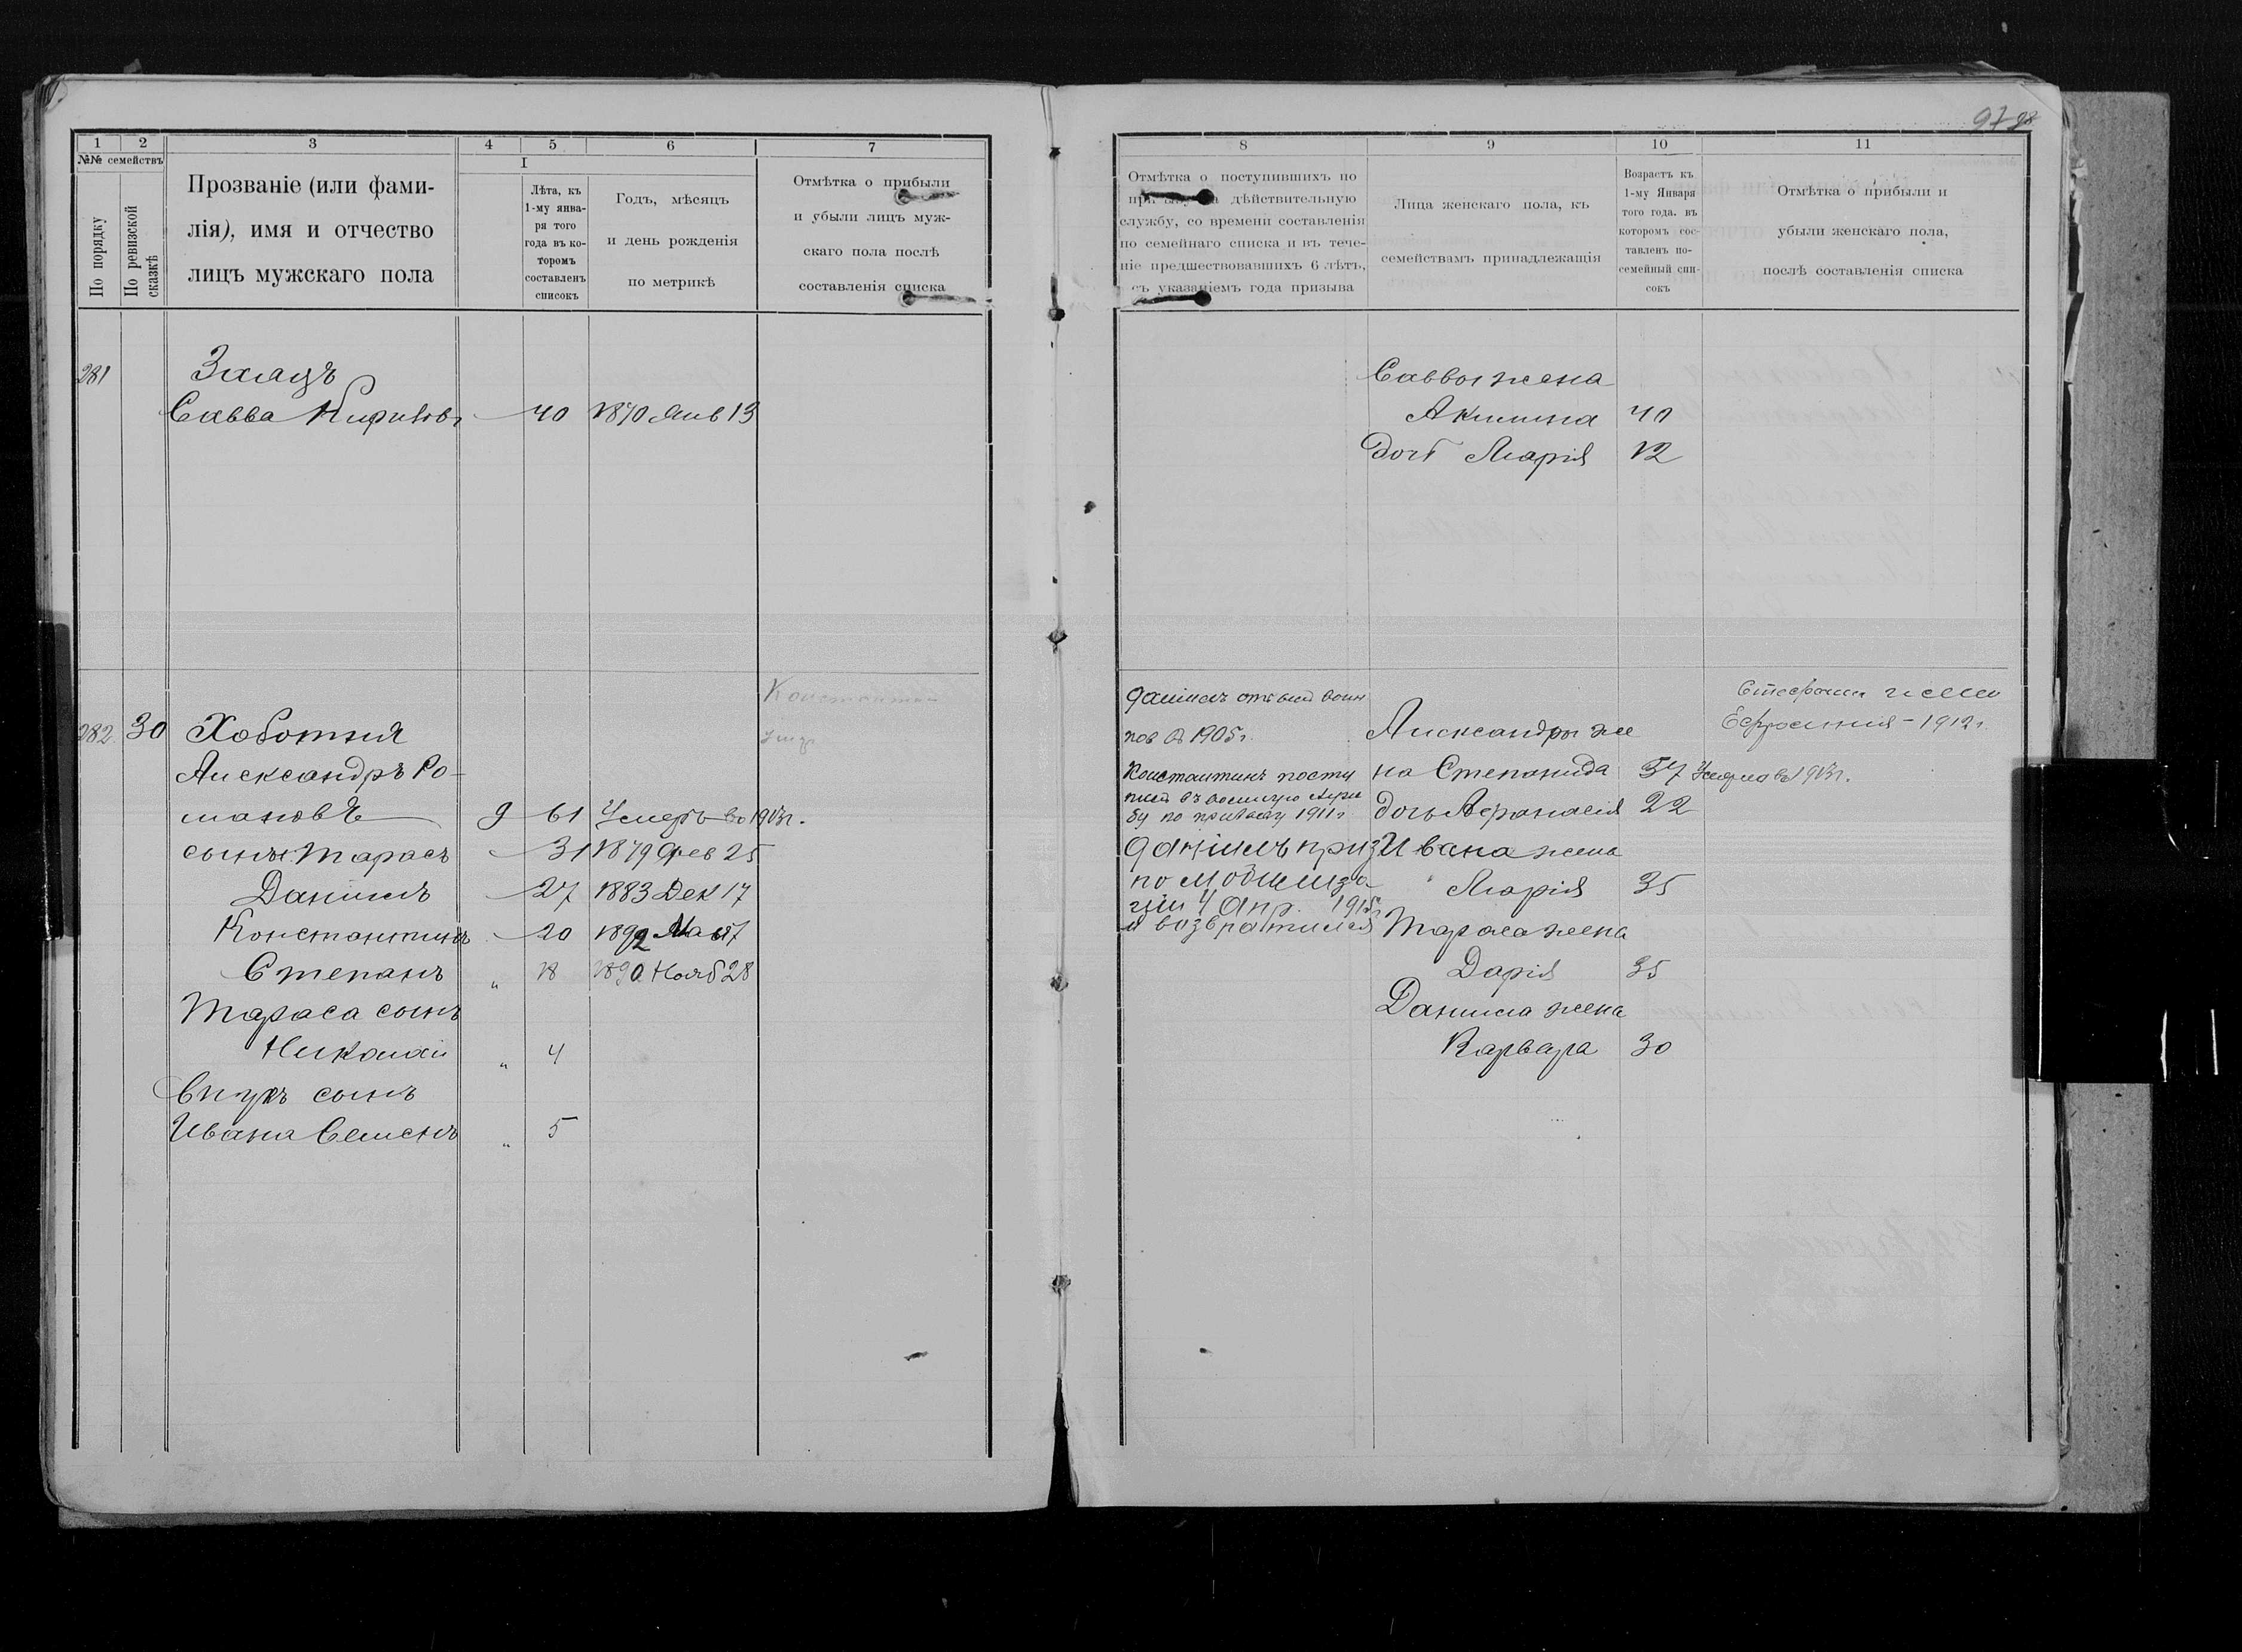 97 98
1 2 3 4 5 6 7
№№ семействъ
По порядку
По ревизской сказкѣ
Прозваніе (или фами-
лія), имя и отчество
лицъ мужскаго пола
I
Лѣта, къ
1-му янва-
ря того
года въ ко-
торомъ
составленъ
списокъ
Годъ, мѣсяцъ
и день рожденія
по метрикѣ
Отмѣтка о прибыли
и убыли лицъ муж-
скаго пола послѣ
составленія списка
281 Заяцъ
Савва 40 1870 Янв 13
Константин
умер
282 30 Хоботня
Александръ Ро-
мановъ 9 61 Умеръ въ 1913г.
сынъ Тарасъ 31 1879 Фев 25
Даніилъ 27 1883 Дек 17
Константинъ 20 1892 Мая
Степанъ " 18 1890 Нояб 28
Тараса сынъ
Николай " 4
Внукъ сынъ
Ивана Семенъ " 5
8 9 10 11
Отмѣтка о поступившихъ по
дѣйствительную
службу, со времени составленія
по семейнаго списка и въ тече-
ніе предшествовавшихъ 6 лѣтъ,
съ указаніемъ года призыва
Лица женскаго пола, къ
семействамъ принадлежащія
Возрастъ къ
1-му Января
того года. въ
которомъ сос-
тавленъ по-
семейный спи-
сокъ
Отмѣтка о прибыли и
убыли женскаго пола,
послѣ составленія списка
Саввы жена
Акилина 40
дочь Марія 12
Даніилъ отбыл воин
пов в 1905г.
Константинъ посту
пил въ военную служ
бу по призыву 1911г
Даніилъ приз
по мобилиза-
ціи 4 Апр. 1915г
и возвратился
Александры же
на Степанида 57 Умерла в 1913г.
дочь Афанасія 22
Ивана жена
Марія 35
Тараса жена
Дарія 35
Данила жена
Варвара 30
Степана жена
Ефросинія - 1912г.